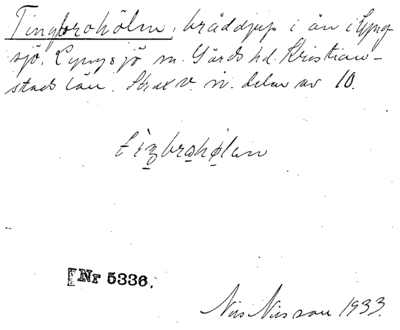 Tingbrohölen, bråddjup i ån i Lyng
sjö. Lyngsjö sn. Gärds hd. Kristian-
stads län. Strax v. n. delen av 10.
tiŋbrohølen
[Nr 5336.
Nils Nilsson 1933.